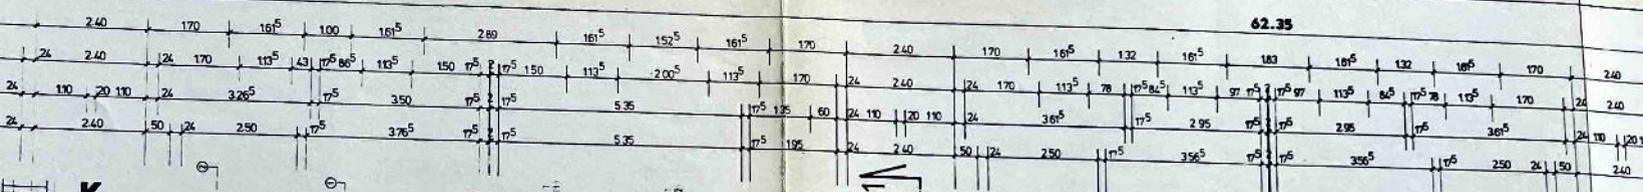 62.35
240 170 161⁵ 100 161⁵ 289 161⁵ 152⁵ 161⁵ 170 240 170 161⁵ 132 161⁵ 183 161⁵ 132 161⁵ 170 240
24 240 24 170 113⁵ 43 17⁵ 86⁵ 113⁵ 150 17⁵ 2 17⁵ 150 113⁵ 200⁵ 113⁵ 170 24 240 24 170 113⁵ 78 17⁵ 84⁵ 113⁵ 97 17⁵ 2 17⁵ 97 113⁵ 84⁵ 17⁵ 78 113⁵ 170 24 240
24 110 20 110 24 326⁵ 17⁵ 350 17⁵ 2 17⁵ 535 17⁵ 135 60 24 110 20 110 24 361⁵ 17⁵ 295 17⁵ 2 17⁵ 295 17⁵ 361⁵ 24 110 20
24 240 50 24 250 17⁵ 376⁵ 17⁵ 2 17⁵ 535 17⁵ 195 24 240 50 24 250 17⁵ 356⁵ 17⁵ 2 17⁵ 356⁵ 17⁵ 250 24 50 240
K